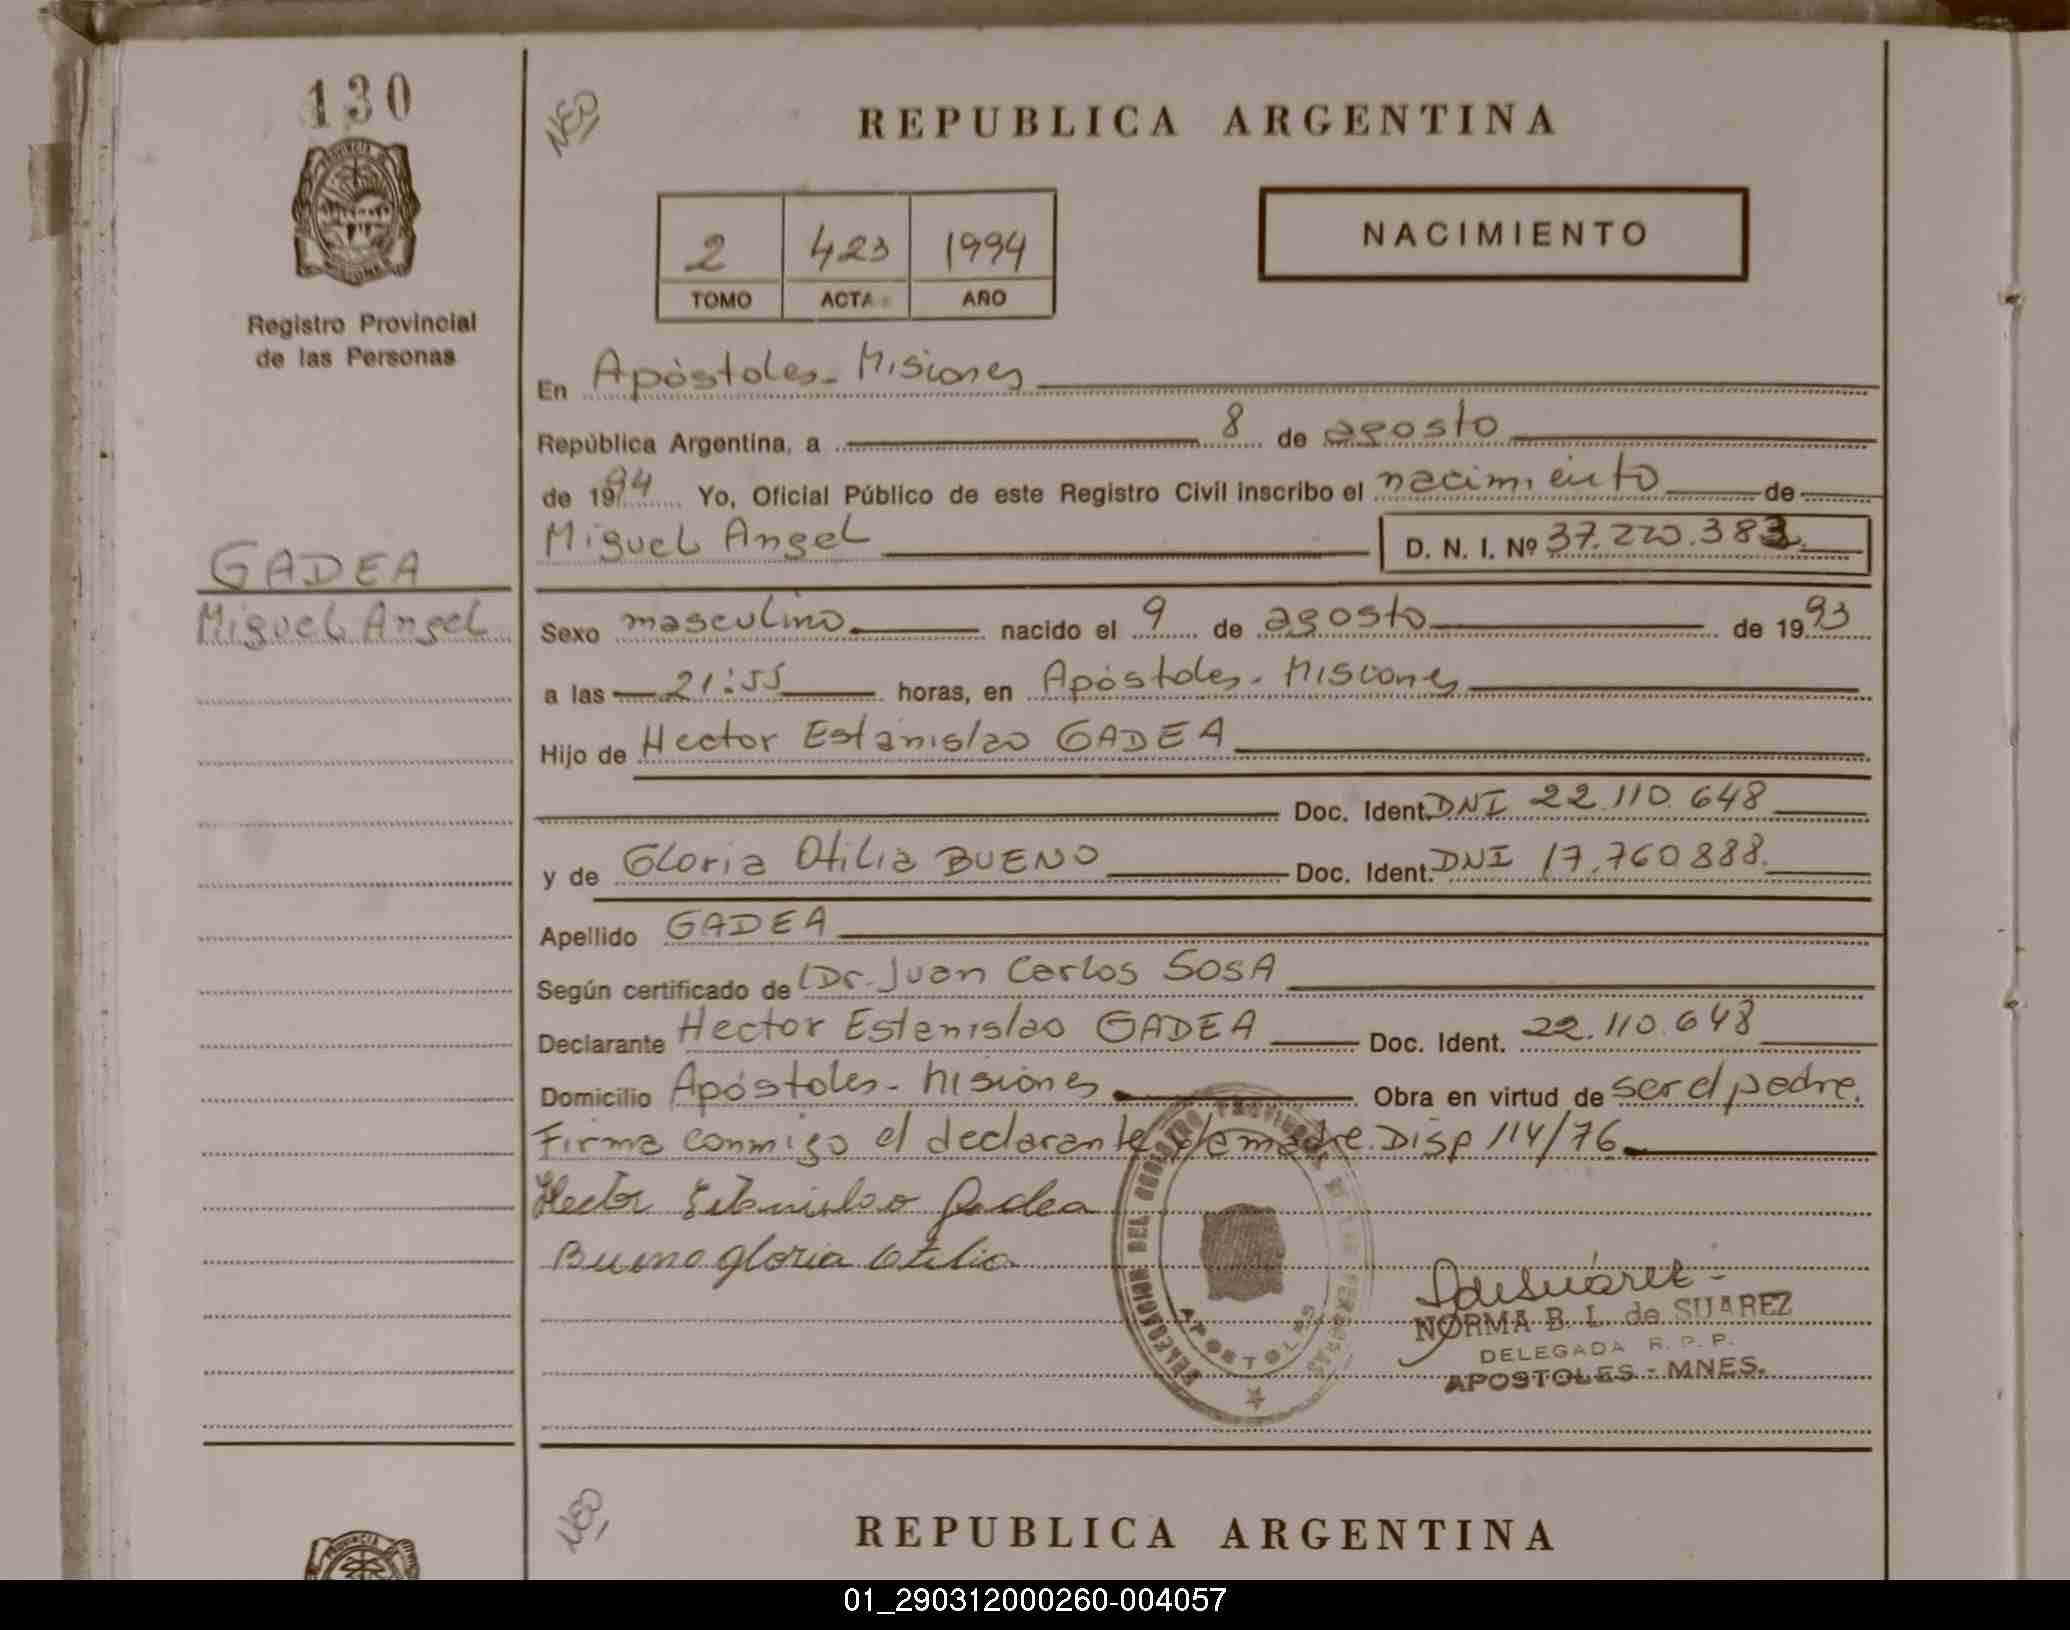 130
NEO
REPUBLICA ARGENTINA
2 423 1994
TOMO ACTA AÑO
NACIMIENTO
Registro Provincial
de las Personas
En Apóstoles - Misiones
República Argentina, a 8 de agosto
de 1994 Yo, Oficial Público de este Registro Civil inscribo el nacimiento de
Miguel Angel D. N. I. Nº 37.220.383
GADEA
Miguel Angel
Sexo masculino nacido el 9 de agosto de 1993
a las 21:55 horas, en Apóstoles - Misiones
Hijo de Hector Estanislao GADEA
Doc. Ident. DNI 22.110.648
y de Gloria Otilia BUENO Doc. Ident. DNI 17.760888.
Apellido GADEA
Según certificado de Dr. Juan Carlos SOSA
Declarante Hector Estanislao GADEA Doc. Ident. 22.110.648
Domicilio Apóstoles - Misiones Obra en virtud de ser el padre.
Firma conmigo el declarante madre. Disp 114/76
Hector Estanislao Gadea
Bueno gloria Otilia
DELEGACION DEL REGISTRO PROVINCIAL DE LAS PERSONAS
APOSTOLES
NORMA B. L. de SUAREZ
DELEGADA R. P. P.
APOSTOLES - MNES.
NEO
REPUBLICA ARGENTINA
01_290312000260-004057